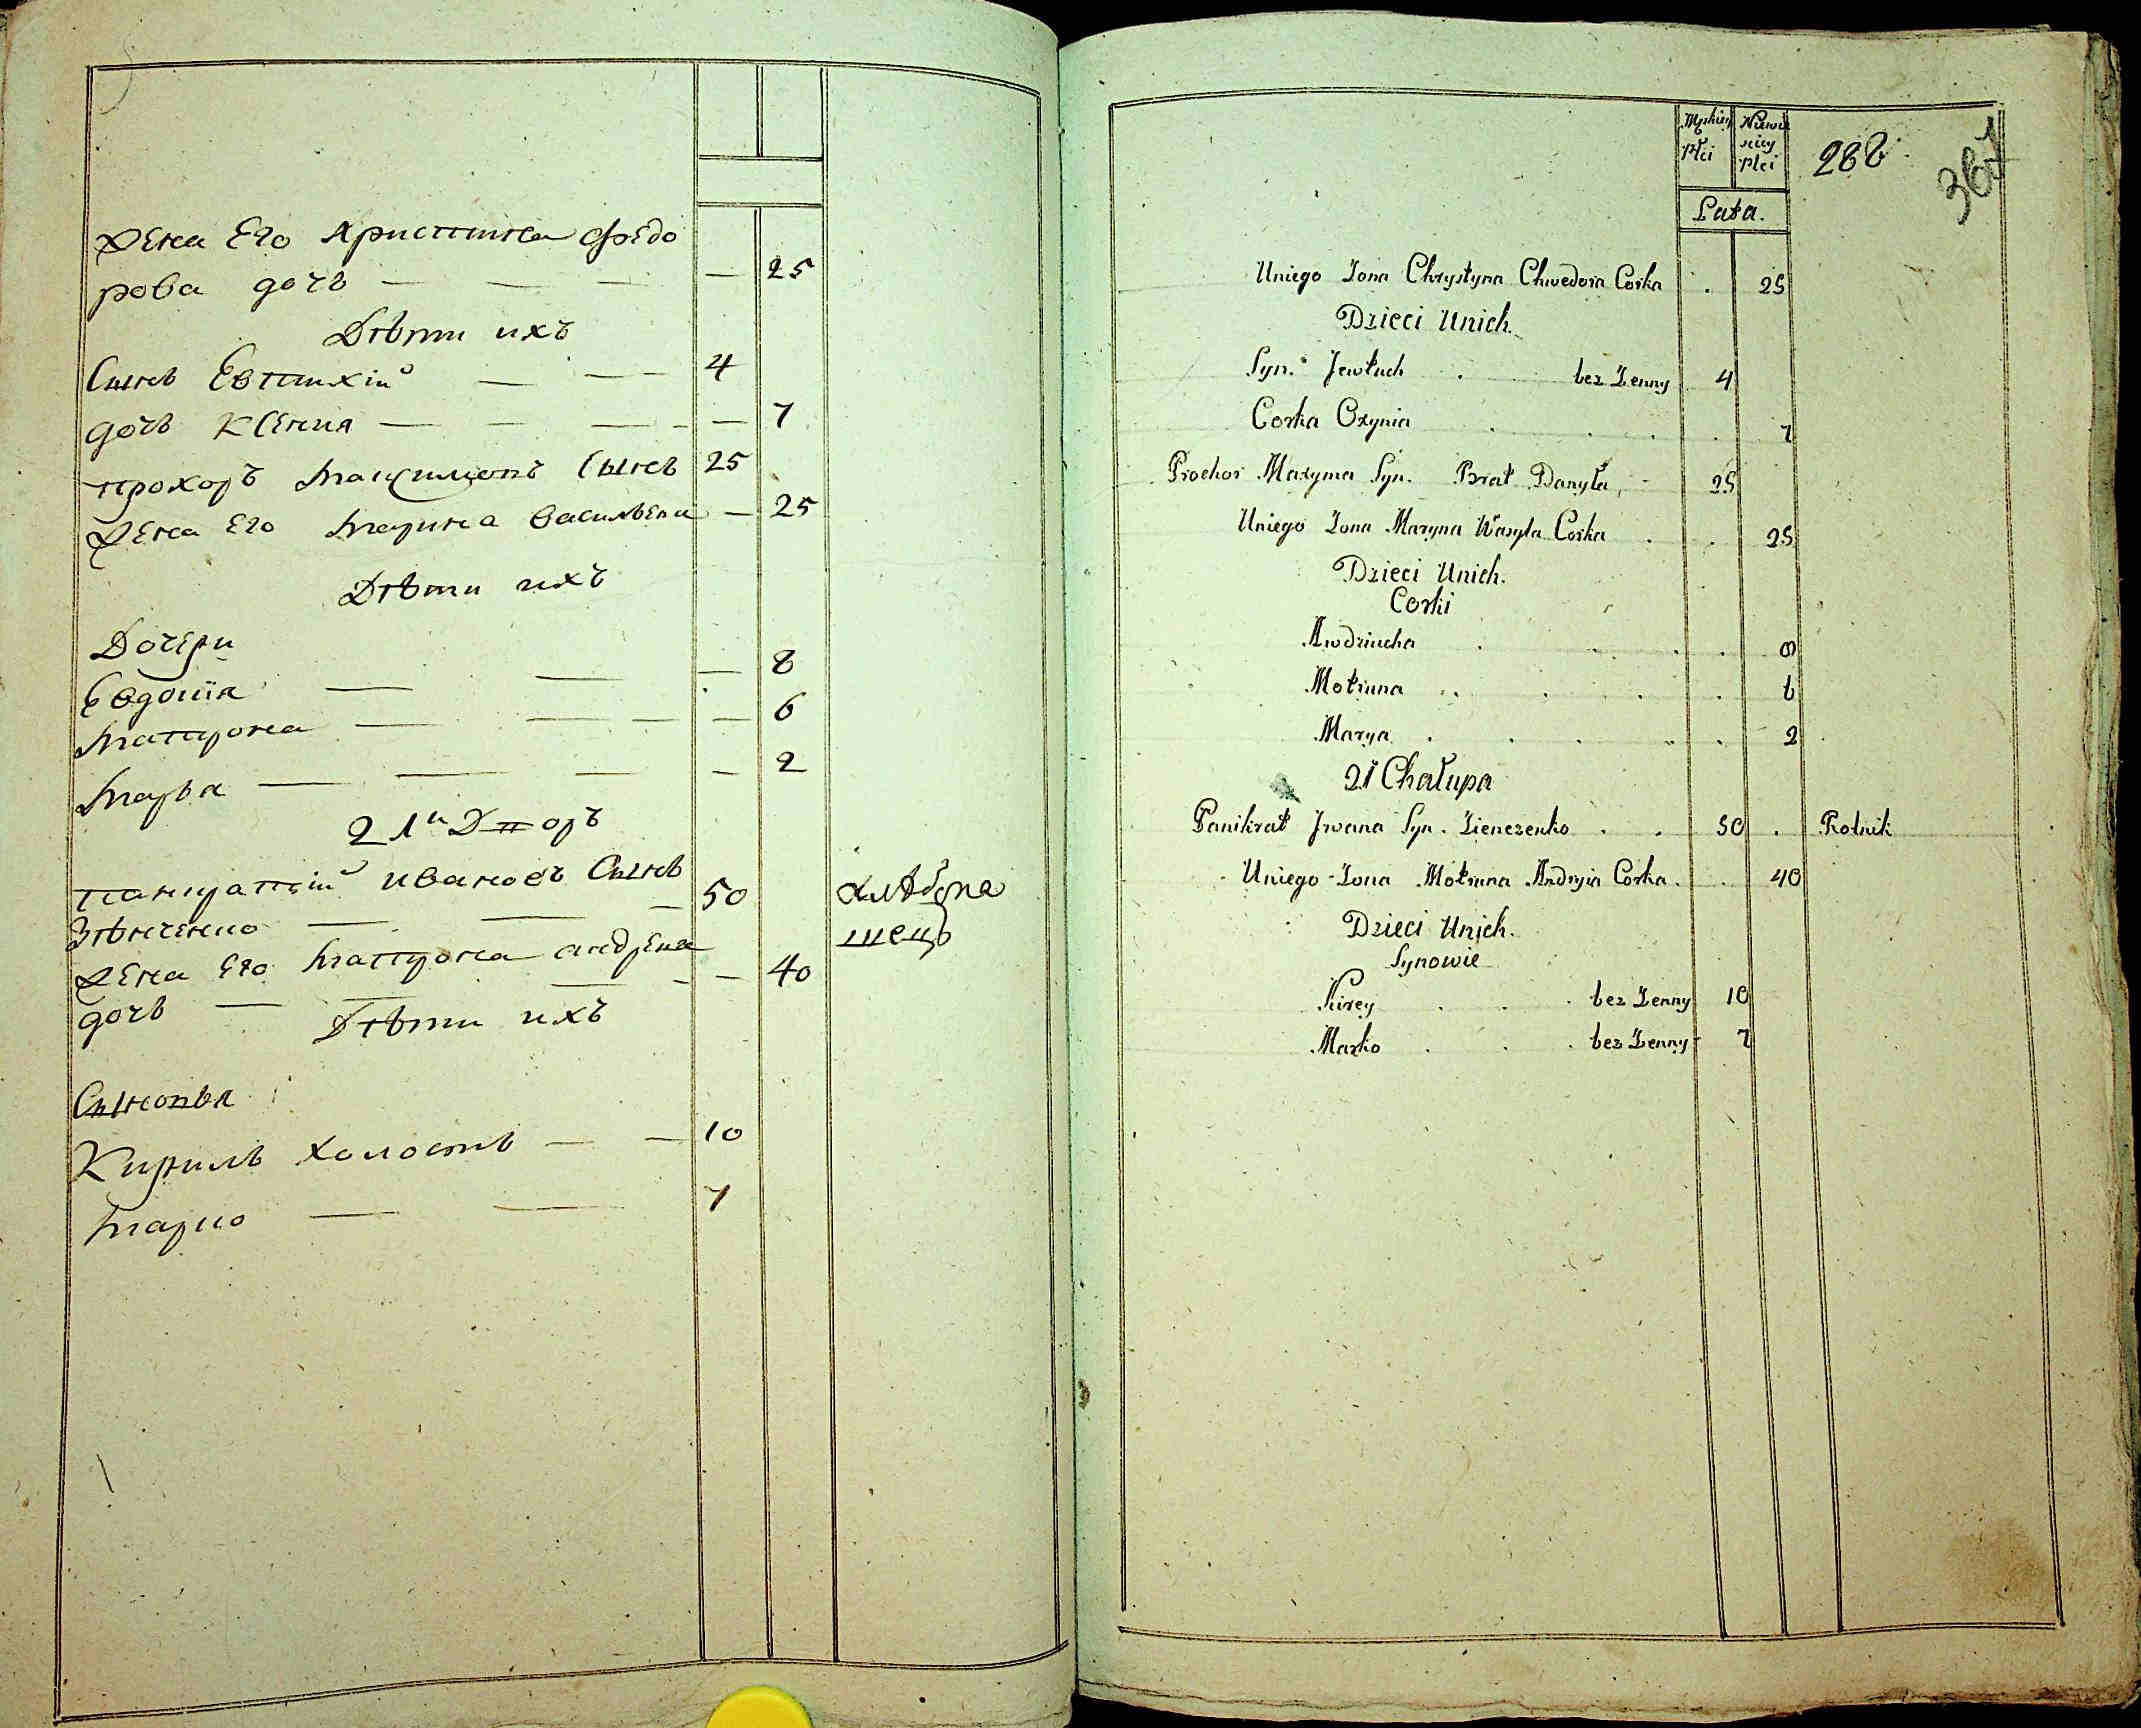 Жена Его Христина Федо
рова дочь — — — — 25
Дѣти ихъ
Сынъ Евтихій — — 4
дочь Ксения — — — — — 7
прохоръ Максимовъ Сынъ 25
Жена Его Марина Васильева — 25
Дѣти ихъ
Дочери
Евдокія — — — 8
Матрона — — — — 6
Марья — — — — 2
21й Дворъ
панкратій Ивановъ Сынъ
Зѣнченко — — — 50 хлѣбопа
шецъ
Жена Его Матрона андреева
дочь — — — — — 40
Дѣти ихъ
Сыновья
Кирилъ холостъ — — 10
Марко — — 7
Męzkiey Niewie
płci sciey
płci
288
367
Lata.
Uniego Zona Chrystyna Chwedora Corka . 25
Dzieci Unich.
Syn. Jewtuch . bez Zenny 4
Corka Oxynia . . . . 7
Prochor Maxyma Syn. Brat Danyła, 25
Uniego Zona Maryna Wasyla Corka . . 25
Dzieci Unich.
Corki
Awdziucha . . . . . 8
Motruna . . . . 6
Marya . . . . . 2
21 Chałupa
Panikrat Jwana Syn. Zienczenko . . 50 . Rolnik
Uniego Zona Motruna Andryia Corka . . 40
Dzieci Unich.
Synowie
Kirey . . . bez Zenny 10
Marko . . . bez Zenny 7